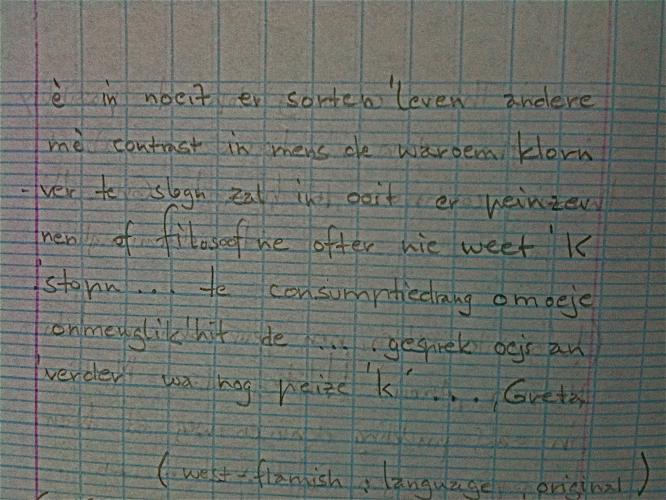 è in noeit er sorten 'leven andere
mè contrast in mens de waroem klorn
-ver te slogn zal in ooit er peinzer
nen of filosoof ne ofter nie weet 'K
'stopn... te consumptiedrang omoeje
onmeuglik'hit de .... gesprek oejs an
'verder wa nog peize 'k' ...., Greta,
(west-flamish : language, original)